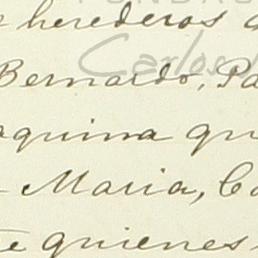 herederos
Carlos
Bernardo, Pa
aquina qu
Maria, Ca
te quienes